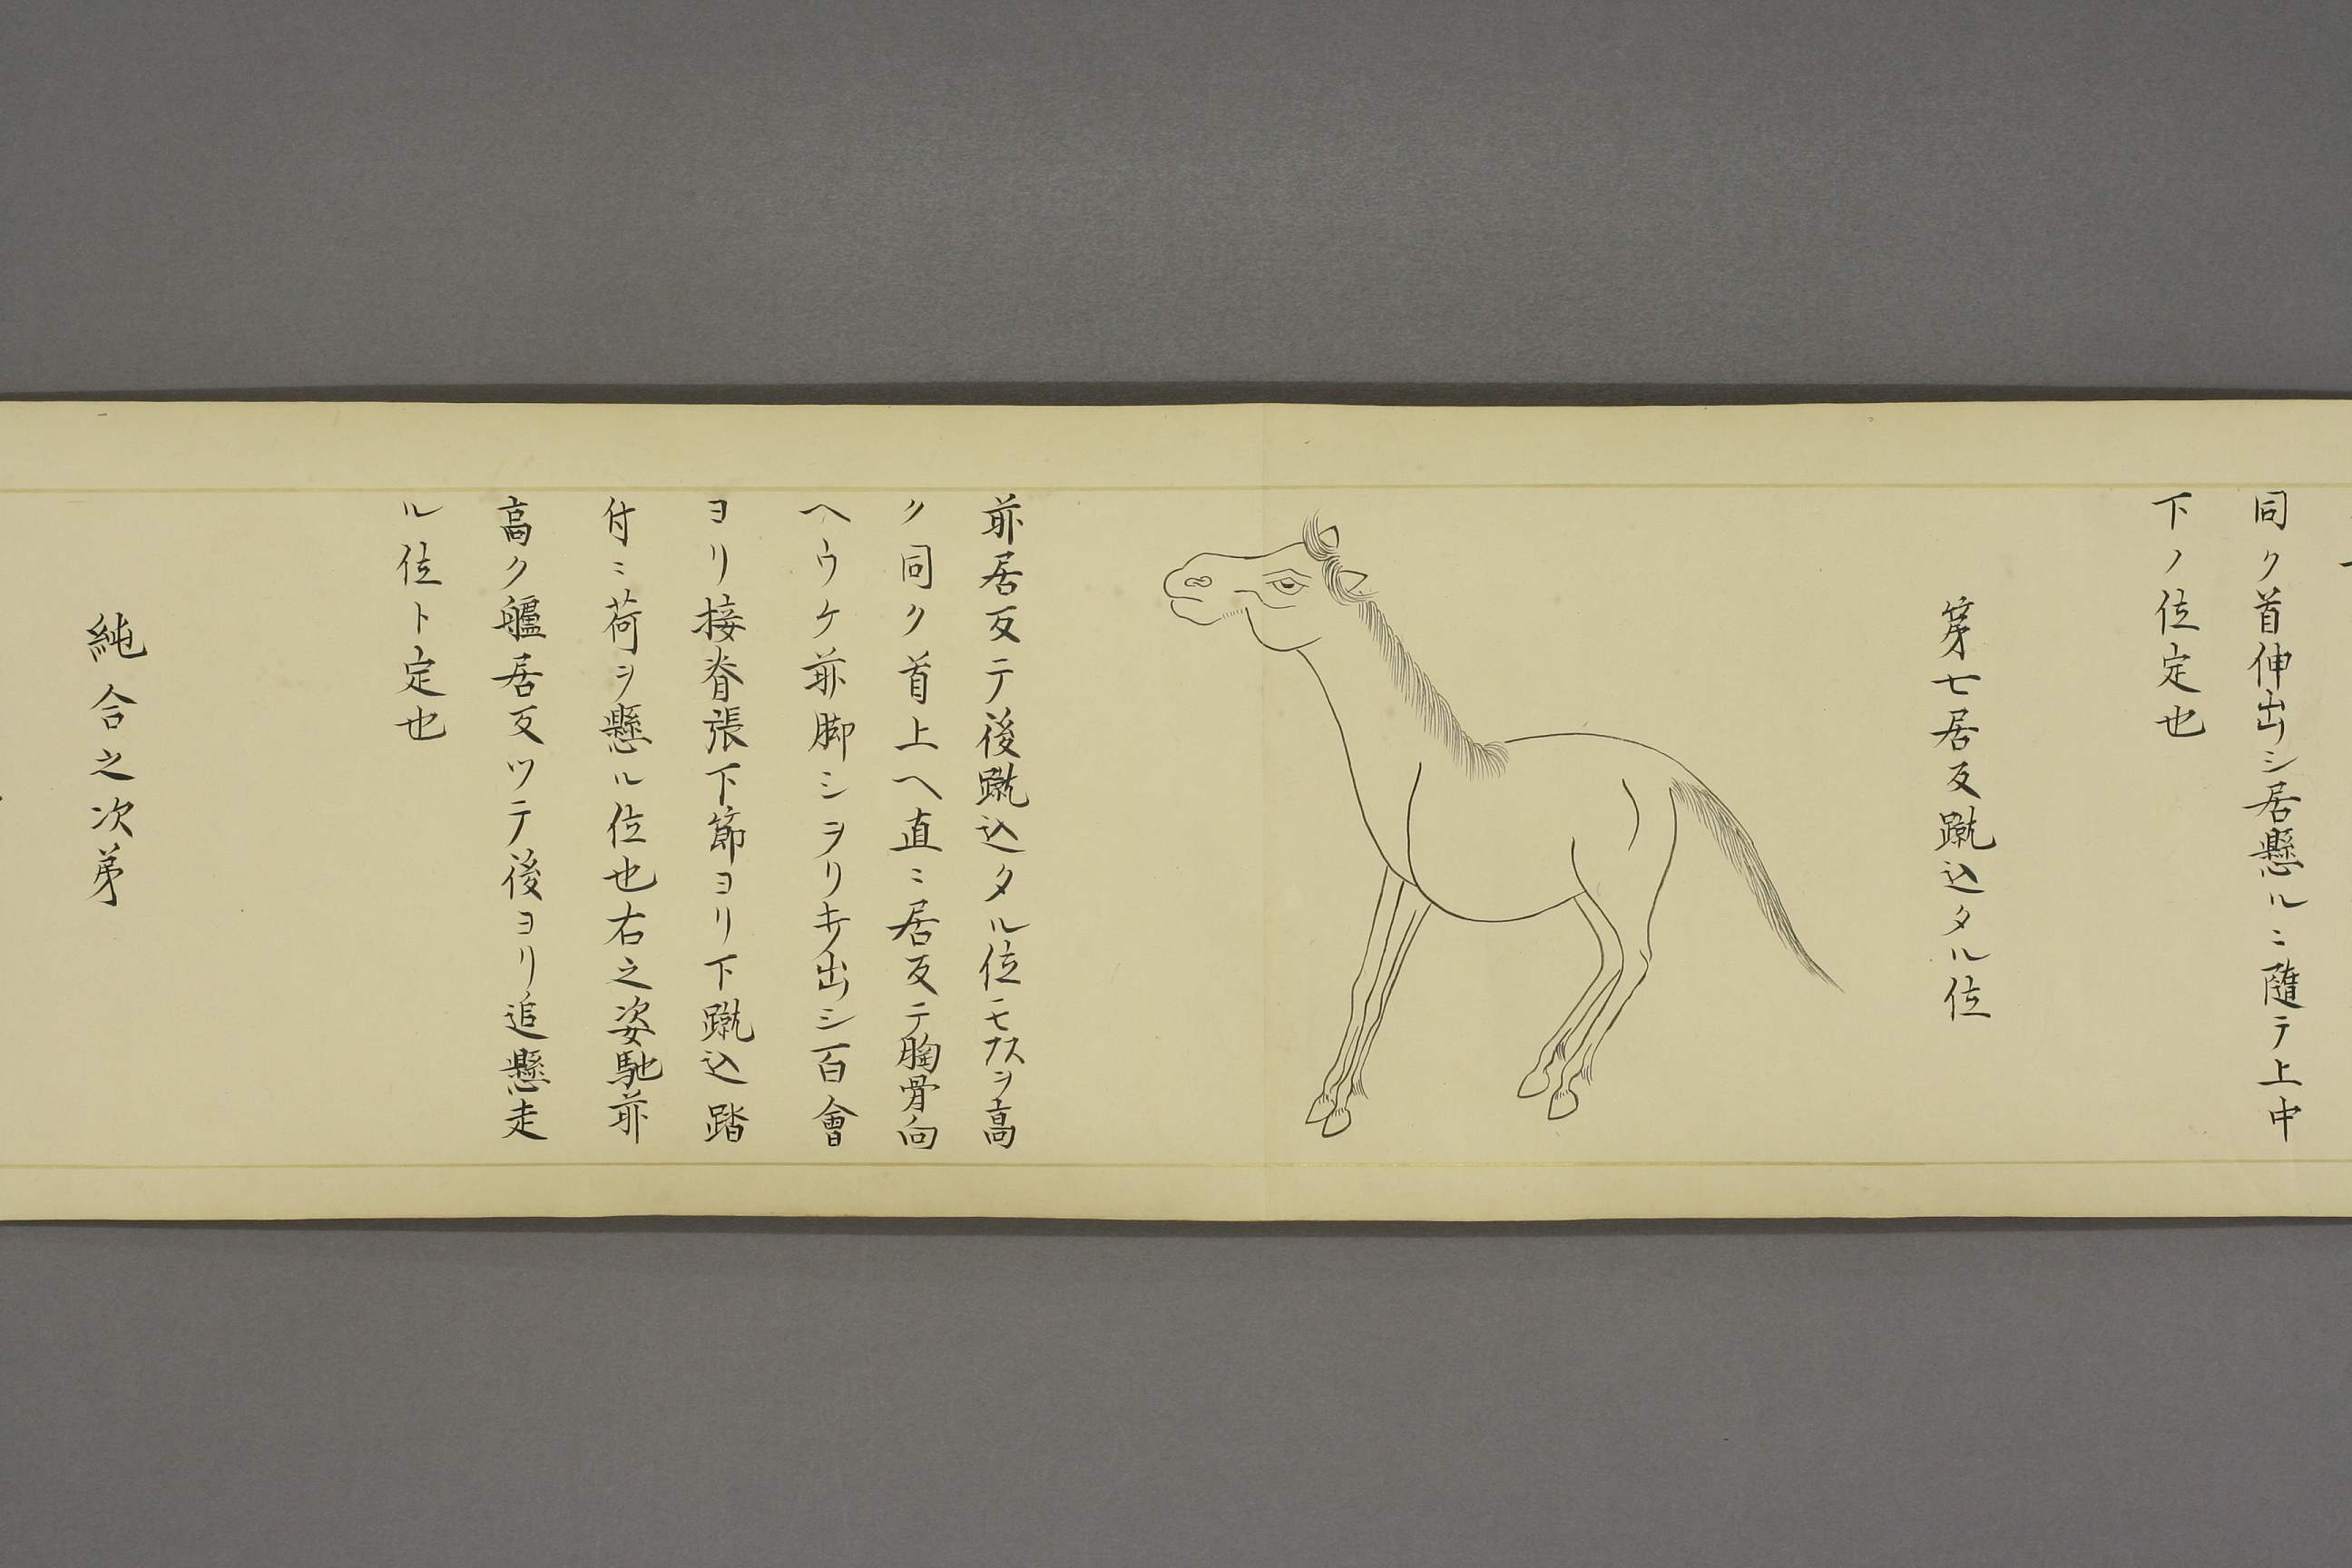 同ク首伸出シ居懸ルニ隨テ上中
下ノ位定也
第七居反蹴込タル位
前居反テ後蹴込タル位ニモナスヲ高
ク同ク首上ヘ直ニ居反テ胸骨向
ヘウケ前脚シヲリキ出シ百會
ヨリ接脊張下節ヨリ下蹴込踏
付ニ荷ヲ懸ル位也右之姿馳前
高ク艫居反ツテ後ヨリ追懸走
ル位ト定也
純合之次第